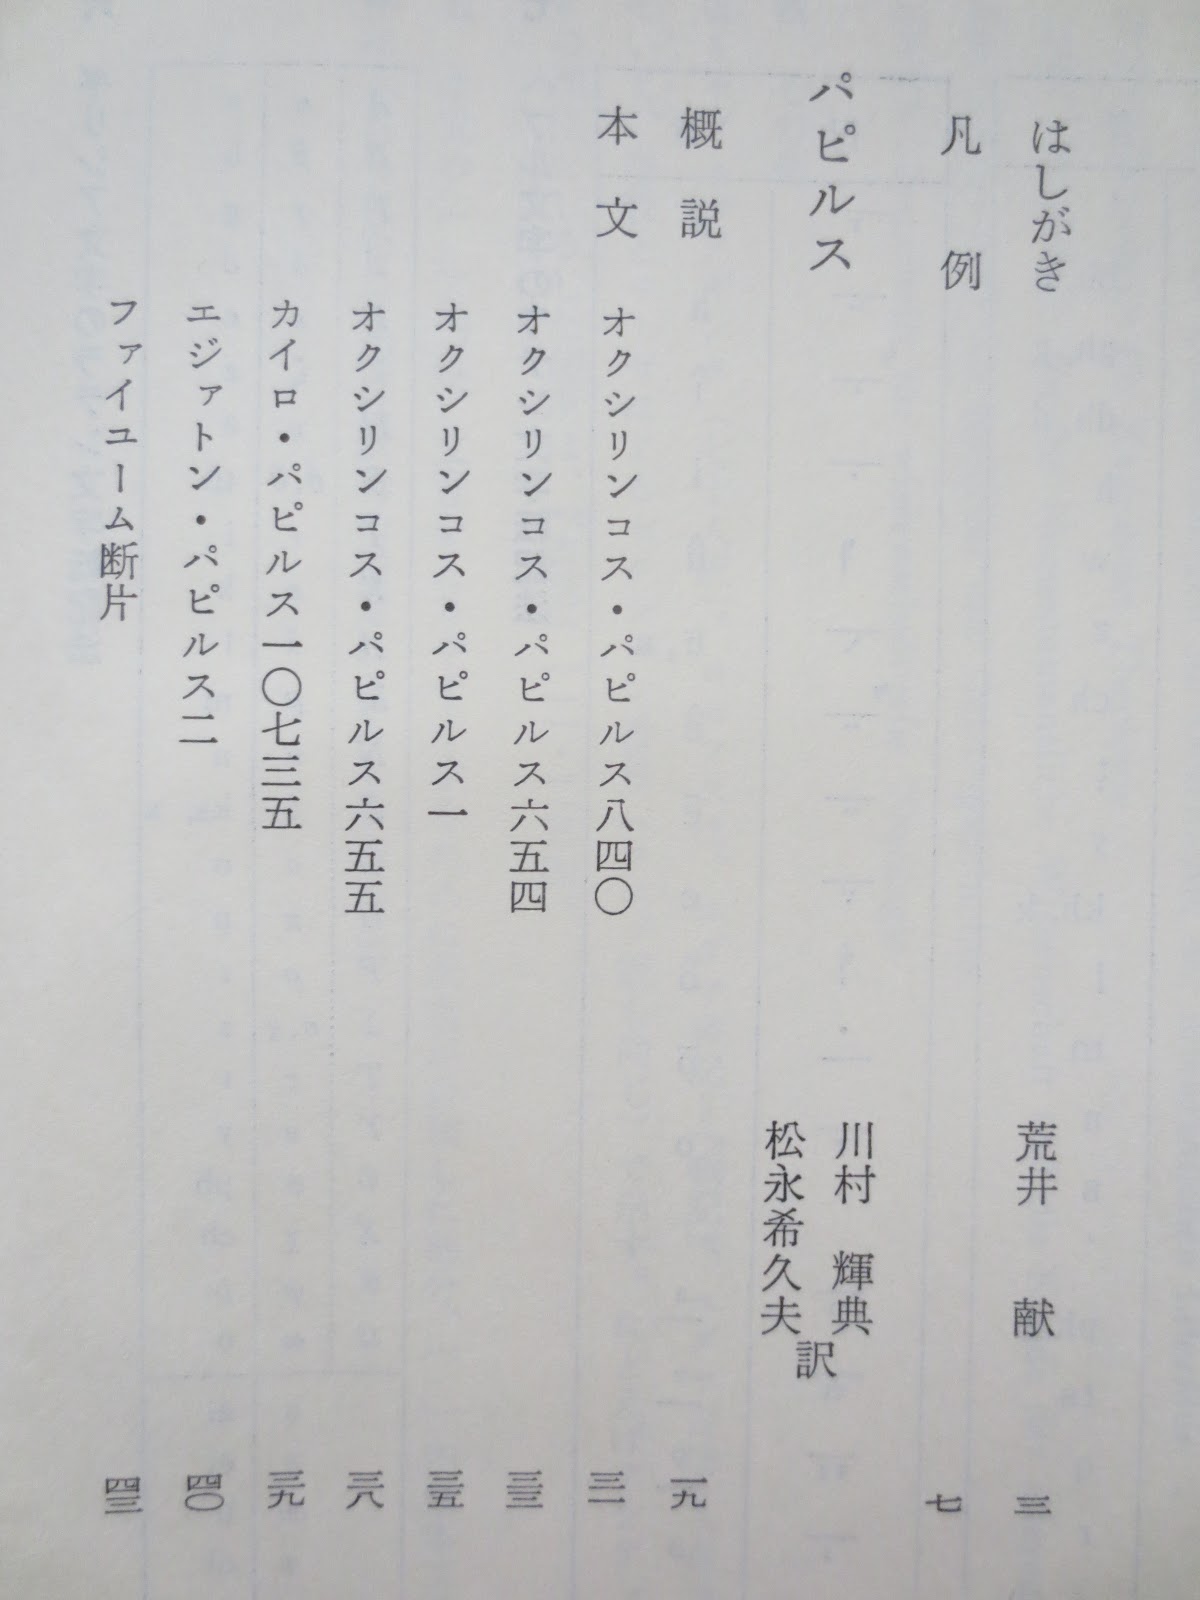 はしがき 荒井 献 三
凡 例 七
パピルス 川村 輝典
松永希久夫 訳
概 説 一九
本 文
オクシリンコス・パピルス八四〇 三一
オクシリンコス・パピルス六五四 三三
オクシリンコス・パピルス一 三五
オクシリンコス・パピルス六五五 三八
カイロ・パピルス一〇七三五 三九
エジァトン・パピルス二 四〇
ファイユーム断片 四三